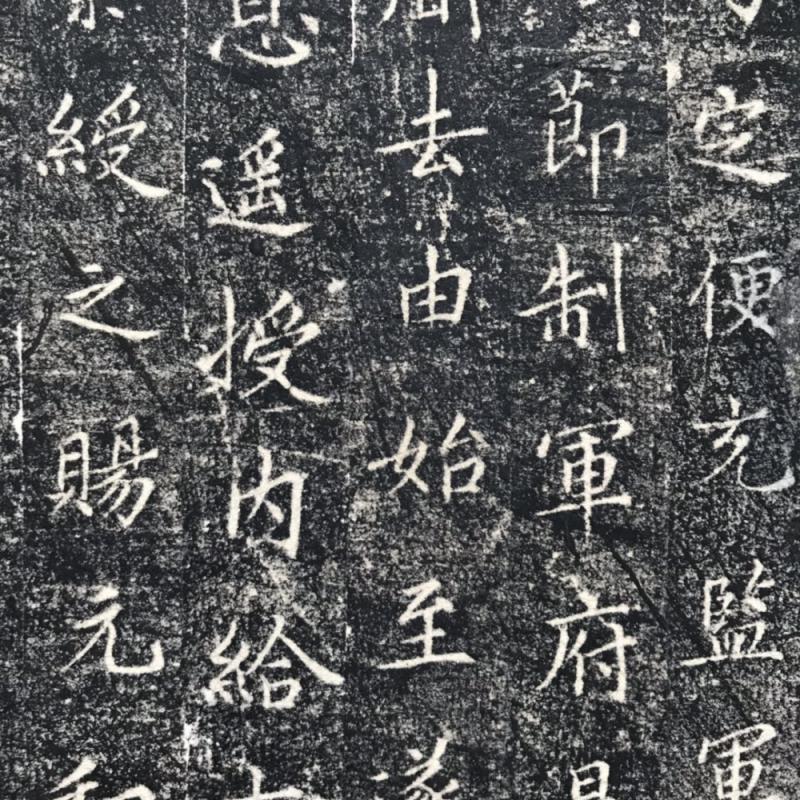 定便充監軍
節制軍府
去由始至遂
息遥授内給
綬之賜元和